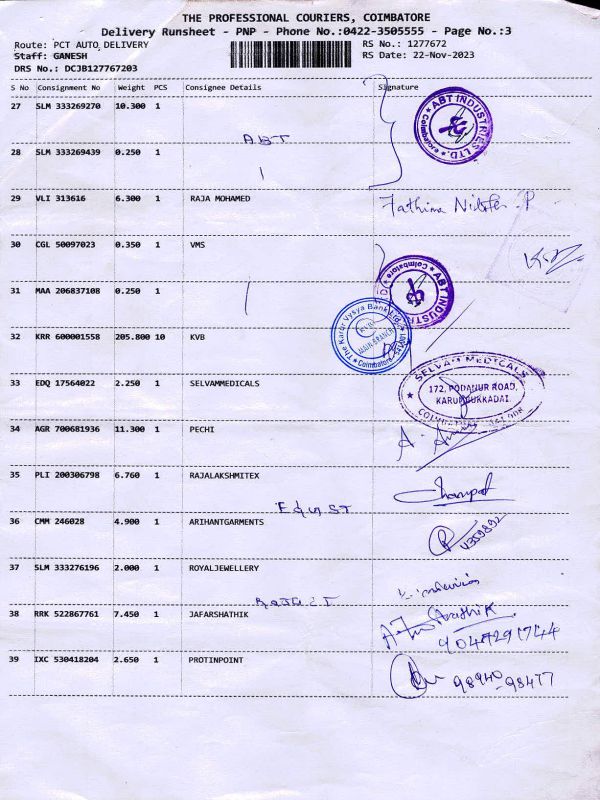 THE PROFESSIONAL COURIERS, COIMBATORE
Delivery Runsheet - PNP - Phone No.:0422-3505555 - Page No.:3
Route: PCT AUTO DELIVERY RS No.: 1277672
Staff: GANESH RS Date: 22-Nov-2023
DRS No.: DCJB127767203
S No Consignment No Weight PCS Consignee Details Signature
27 SLM 333269270 10.300 1
ABT INDUSTRIES LTD. Coimbatore
ABT
28 SLM 333269439 0.250 1
29 VLI 313616 6.300 1 RAJA MOHAMED Fathima Nilofer .P
30 CGL 50097023 0.350 1 VMS
31 MAA 206837108 0.250 1
ABT INDUSTRIES LTD. Coimbatore
32 KRR 600001558 205.800 10 KVB
The Karur Vysya Bank Ltd. MAIN BRANCH Coimbatore
33 EDQ 17564022 2.250 1 SELVAMMEDICALS
SELVAM MEDICALS
172, PODANUR ROAD,
KARUMBUKKADAI
34 AGR 700681936 11.300 1 PECHI
35 PLI 200306798 6.760 1 RAJALAKSHMITEX
36 CMM 246028 4.900 1 ARIHANTGARMENTS
37 SLM 333276196 2.000 1 ROYALJEWELLERY
38 RRK 522867761 7.450 1 JAFARSHATHIK
39 IXC 530418204 2.650 1 PROTINPOINT
98940-98477